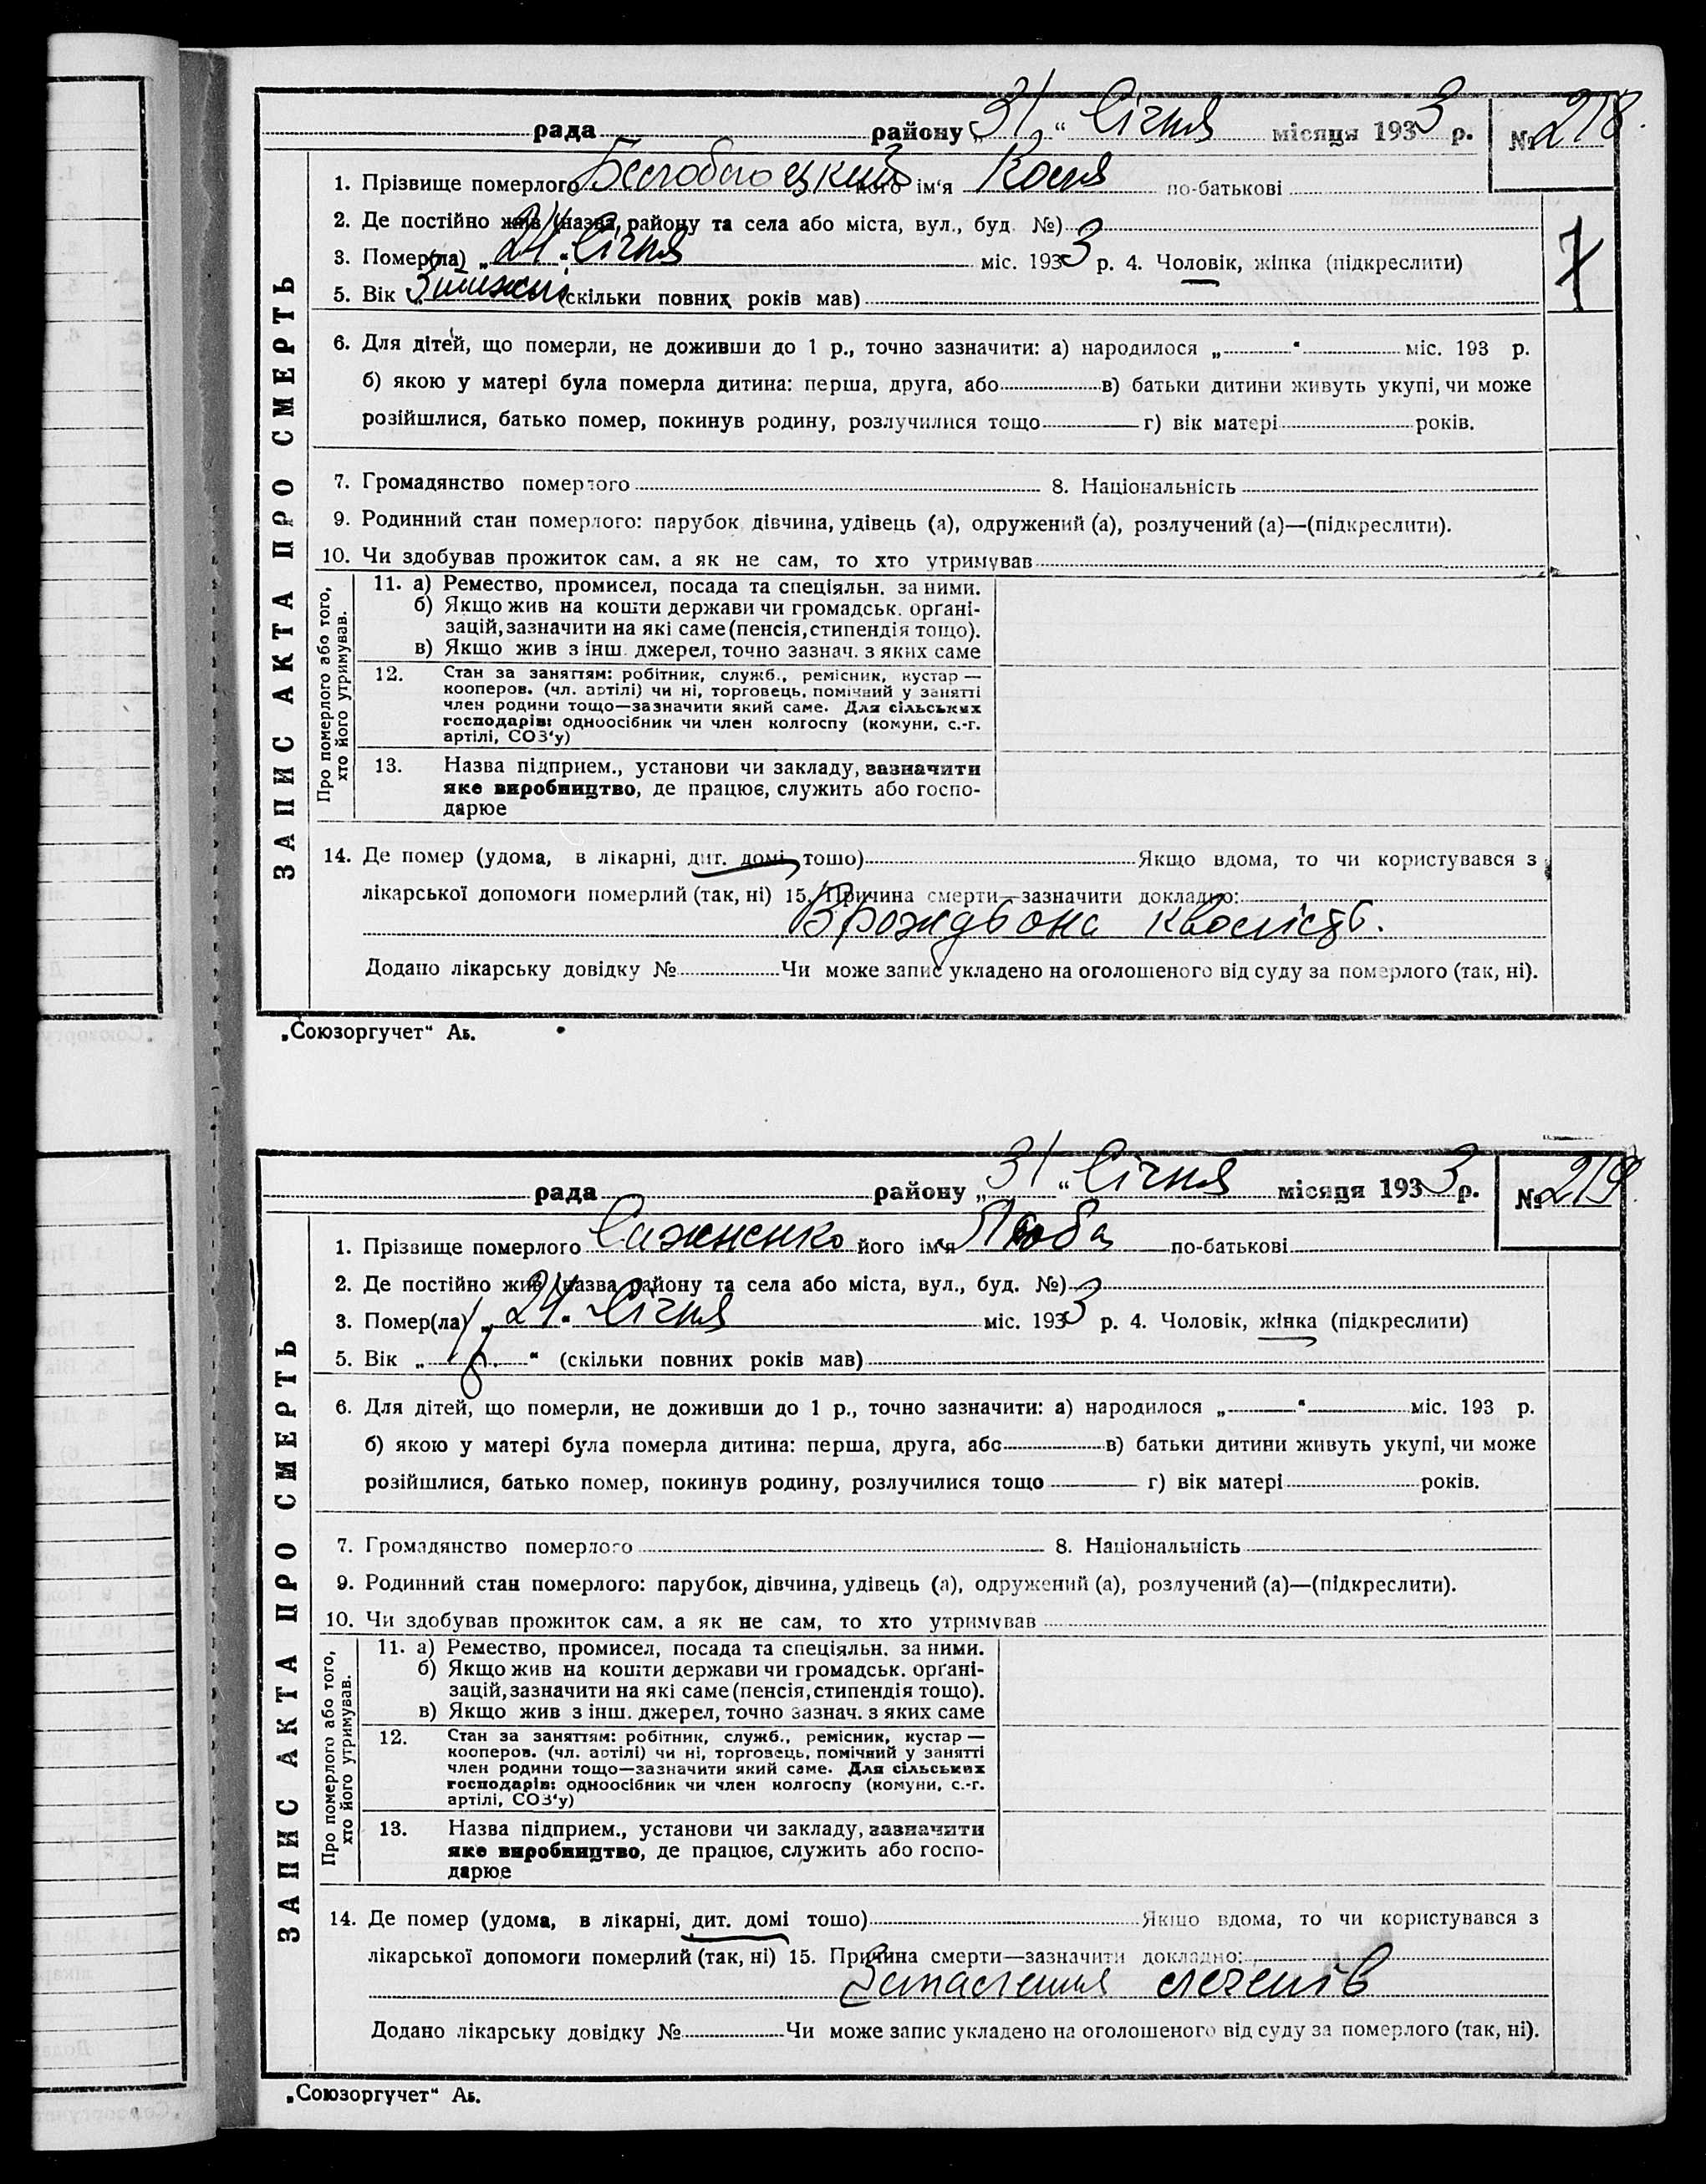 рада района „31“ Січня місяця 1933 р. № 218.
1. Прізвище померлого його ім‘я Костя по-батькові
2. Де постійно жив (назва району та села або міста, вул., буд. №)
3. Помер(ла) „24“ Січня міс. 1933 р. 4. Чоловік, жінка (підкреслити)
7
5. Вік „3 тижні (скільки повних років мав)
6. Для дітей, що померли, не доживши до 1 р., точно зазначити: а) народилося „ “ міс. 193 р.
б) якою у матері була померла дитина: перша, друга, або в) батьки дитини живуть укупі, чи може
розійшлися, батько помер, покинув родину, розлучилися тощо г) вік матері років.
7. Громадянство померлого 8. Національність
9. Родинний стан померлого: парубок, дівчина, удівець (а), одружений (а), розлучений (а)—(підкреслити).
10. Чи здобував прожиток сам, а як не сам, то хто утримував
ЗАПИС АКТА ПРО СМЕРТЬ
Про померлого або того,
хто його утримував.
11. а) Ремество, промисел, посада та спеціяльн. за ними.
б) Якщо жив на кошти держави чи громадськ. орґані-
зацій, зазначити на які саме (пенсія, стипендія тощо).
в) Якщо жив з інш. джерел, точно зазнач. з яких саме
12. Стан за заняттям: робітник, служб., ремісник, кустар —
кооперов. (чл. артілі) чи ні, торговець, помічний у занятті
член родини тощо—зазначити який саме. Для сільських
господарів: одноосібник чи член колгоспу (комуни, с.-г.
артілі, СОЗ‘у)
13. Назва підприєм., установи чи закладу, зазначити
яке виробництво, де працює, служить або госпо-
дарює
14. Де помер (удома, в лікарні, дит. домі, тощо) Якщо вдома, то чи користувався з
лікарської допомоги померлий (так, ні) 15. Причина смерти—зазначити докладно:
Врождьона кволість.
Додано лікарську довідку № Чи може запис укладено на оголошеного від суду за померлого (так, ні).
„Союзоргучет“ Аь.
рада району „31“ Січня місяця 1933 р. № 219.
1. Прізвище померлого Саженко його ім‘я Люба по-батькові
2. Де постійно жив (назва району та села або міста, вул., буд. №)
3. Помер(ла) „24“ Січня міс. 1933 р. 4. Чоловік, жінка (підкреслити)
5. Вік „ “ (скільки повних років мав)
6. Для дітей, що померли, не доживши до 1 р., точно зазначити: а) народилося „ “ міс. 193 р.
б) якою у матері була померла дитина: перша, друга, або в) батьки дитини живуть укупі, чи може
розійшлися, батько помер, покинув родину, розлучилися тощо г) вік матері років.
7. Громадянство померлого 8. Національність
9. Родинний стан померлого: парубок, дівчина, удівець (а), одружений (а), розлучений (а)—(підкреслити).
10. Чи здобував прожиток сам, а як не сам, то хто утримував
ЗАПИС АКТА ПРО СМЕРТЬ
Про померлого або того,
хто його утримував.
11. а) Ремество, промисел, посада та спеціяльн. за ними.
б) Якщо жив на кошти держави чи громадськ. орґані-
зацій, зазначити на які саме (пенсія, стипендія тощо).
в) Якщо жив з інш. джерел, точно зазнач. з яких саме
12. Стан за заняттям: робітник, служб., ремісник, кустар —
кооперов. (чл. артілі) чи ні, торговець, помічний у занятті
член родини тощо—зазначити який саме. Для сільських
господарів: одноосібник чи член колгоспу (комуни, с.-г.
артілі, СОЗ‘у)
13. Назва підприєм., установи чи закладу, зазначити
яке виробництво, де працює, служить або госпо-
дарює
14. Де помер (удома, в лікарні, дит. домі тощо) Якщо вдома, то чи користувався з
лікарської допомоги померлий (так, ні) 15. Причина смерти—зазначити докладно:
Запалення легенів
Додано лікарську довідку № Чи може запис укладено на оголошеного від суду за померлого (так, ні).
„Союзоргучет“ Аь.